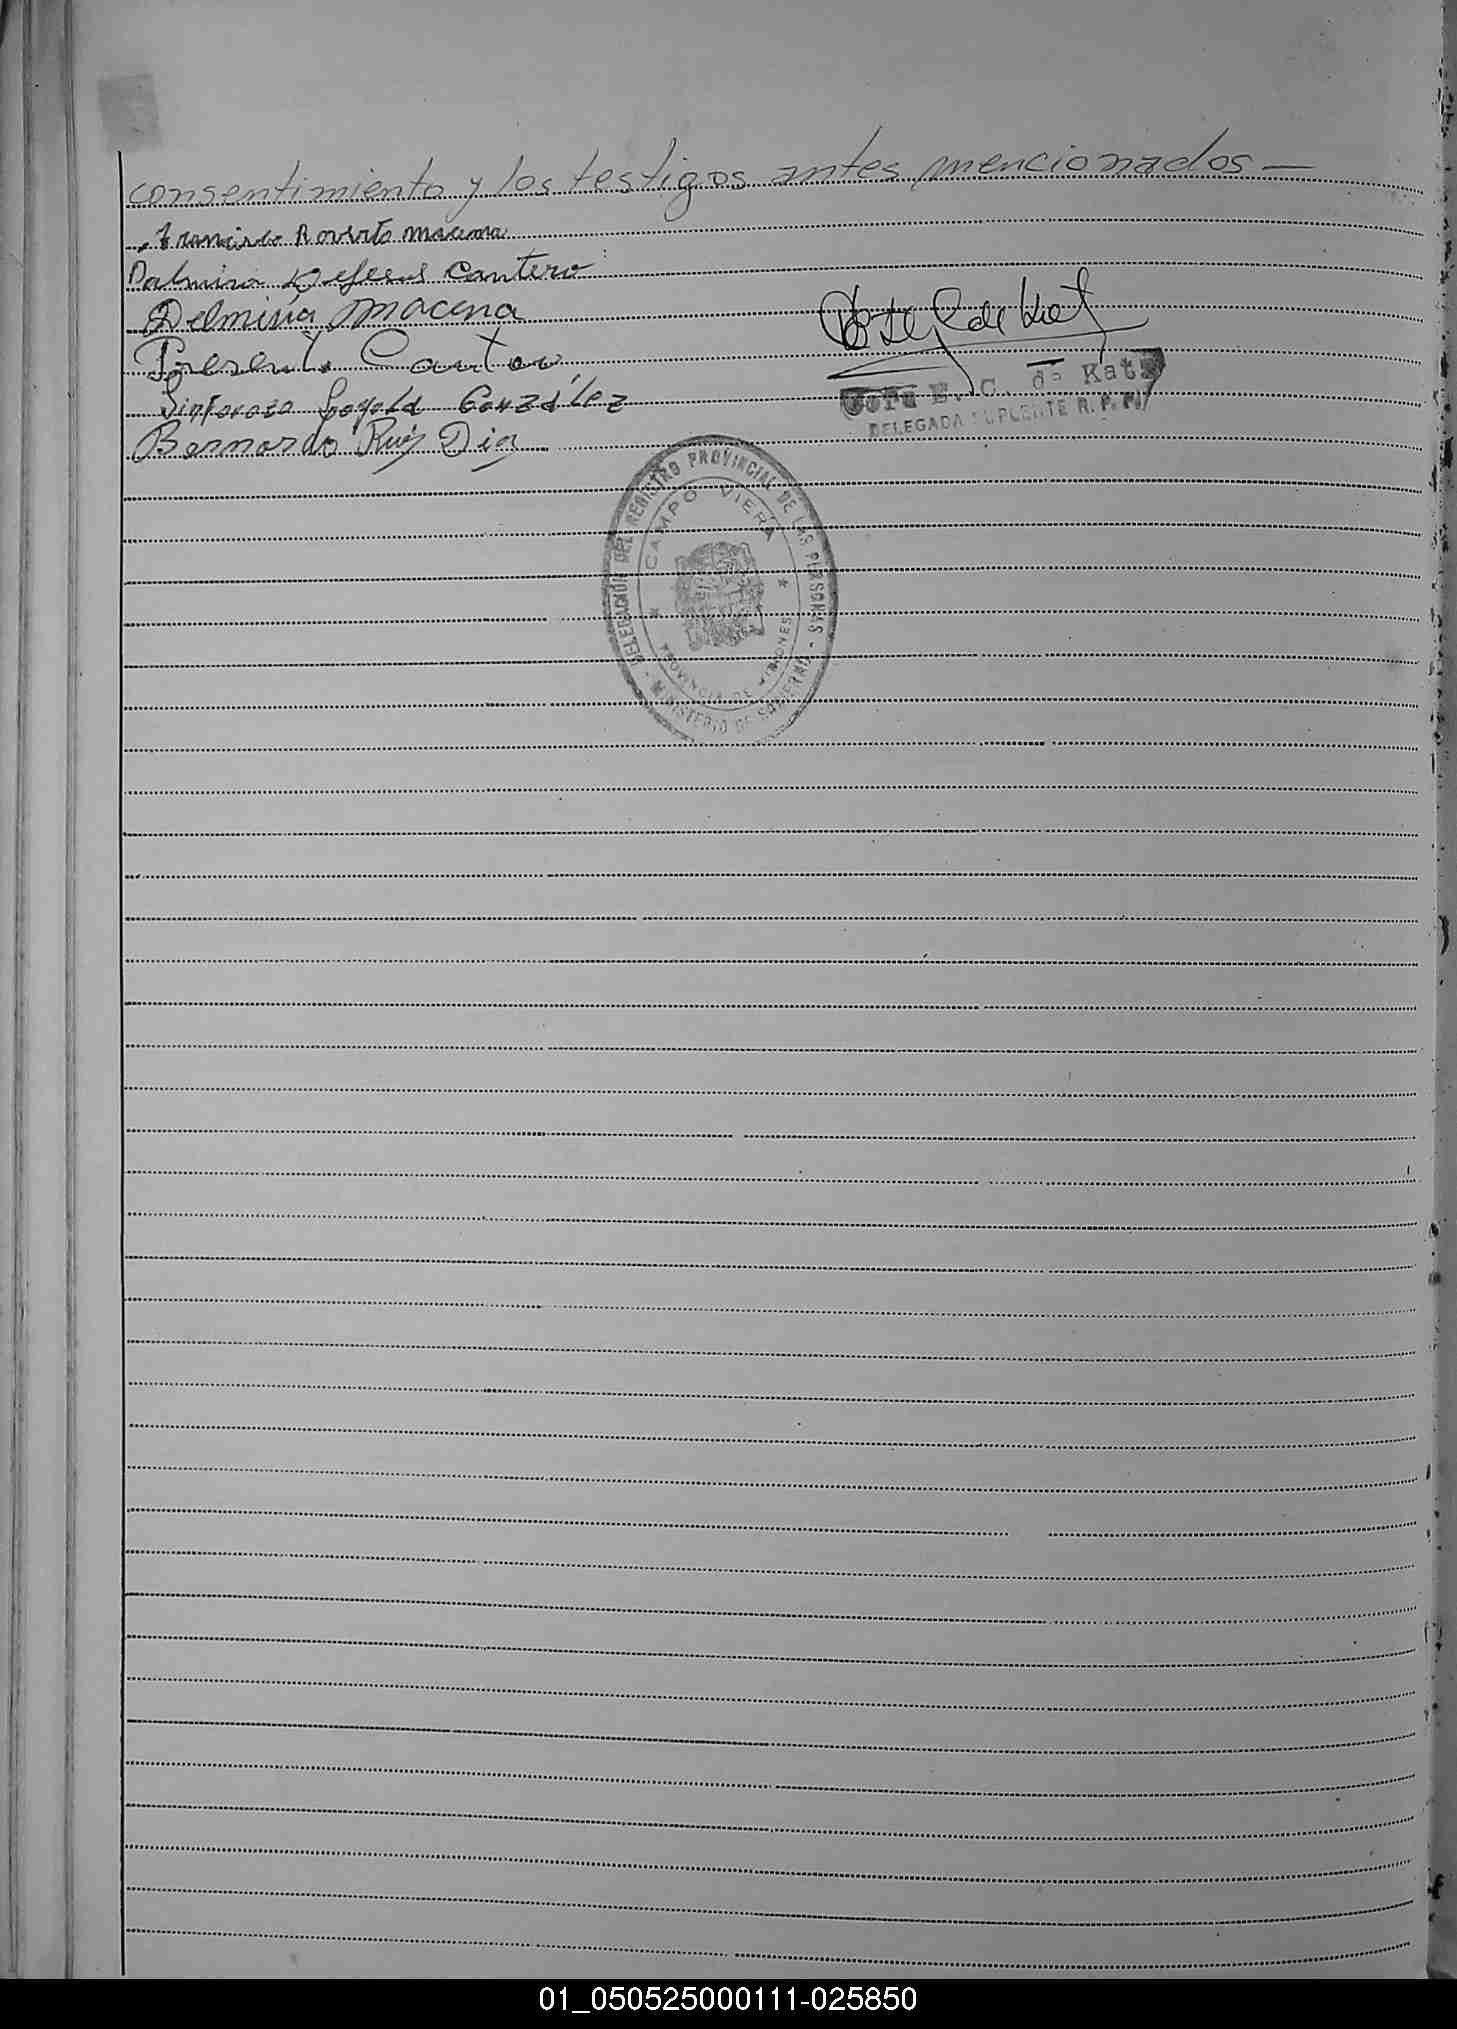 consentimiento y los testigos antes mencionados —
Francisco Roberto Macena
Dalmira DeJesus Cantero
Delmiria Macena
Cantero
González
Bernardo Ruiz Dia
E. C. de Katz
DELEGADA SUPLENTE R. P. P.
DELEGACION DEL REGISTRO PROVINCIAL DE LAS PERSONAS - MINISTERIO DE GOBIERNO -
CAMPO VIERA
* PROVINCIA DE MISIONES *
01_050525000111-025850